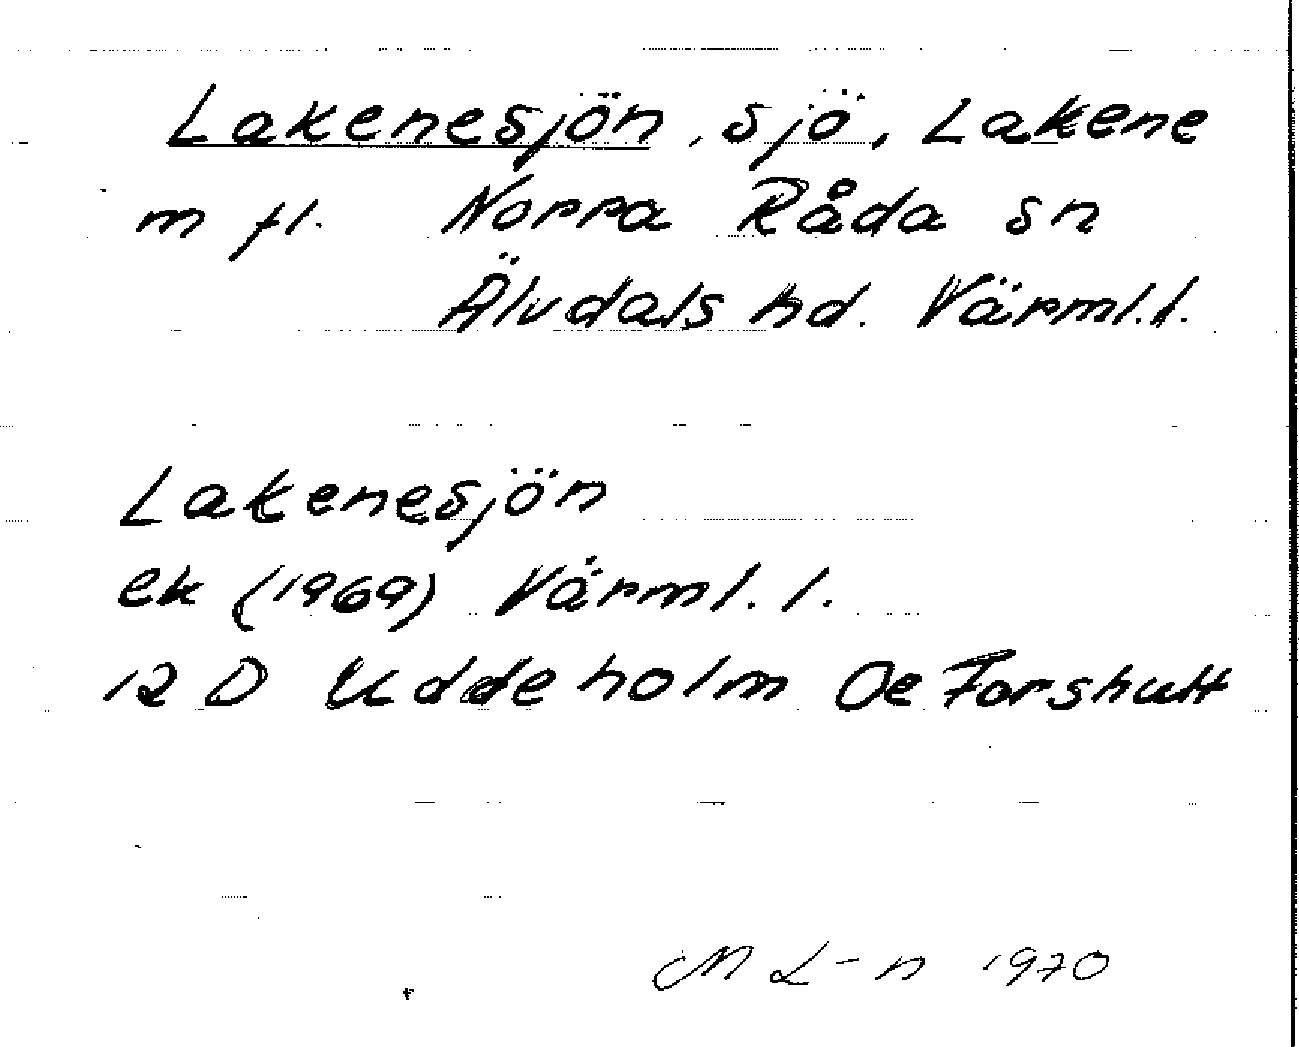 Lakenesjön, sjö, Lakene
m fl. Norra Råda sn
Älvdals hd. Värml.l.
Lakenesjön
ek (1969) Värml.l.
12 D Uddeholm Oe Forshult
M L-n 1970